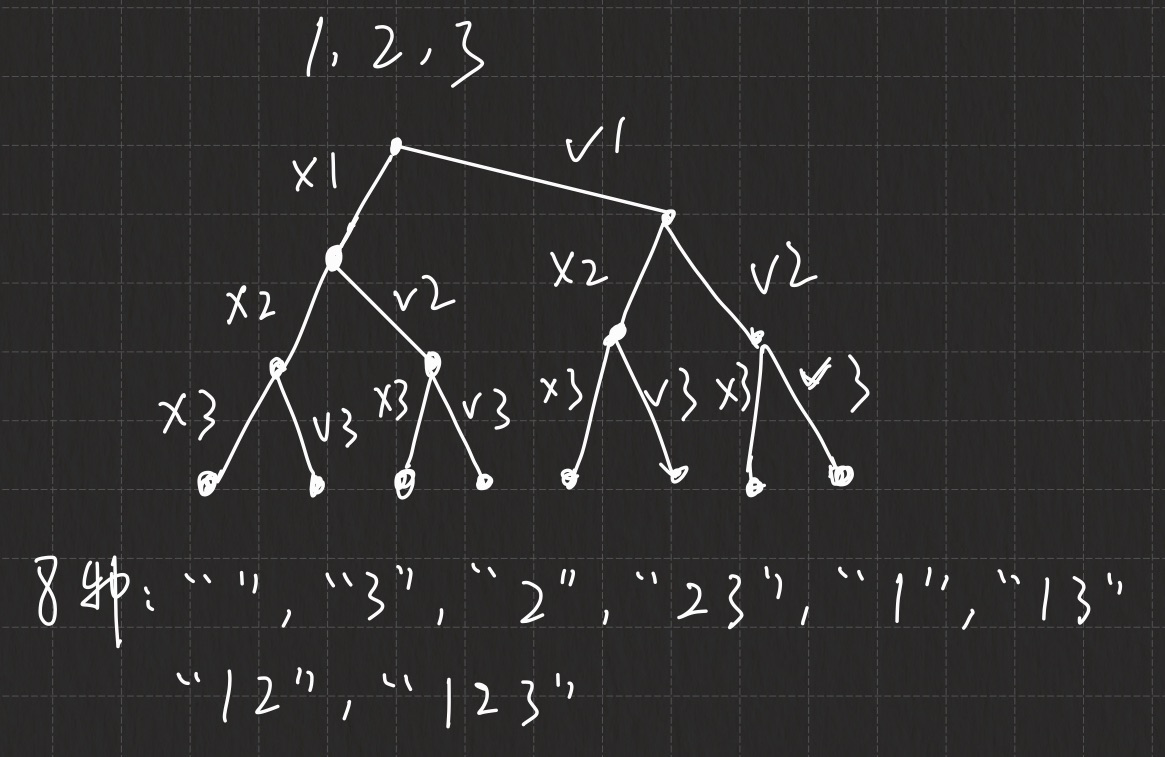 1, 2, 3
×1 √1
×2 √2 ×2 √2
×3 √3 ×3 √3 ×3 √3 ×3 √3
8种: “ ”, “3”, “2”, “23”, “1”, “13”
“12”, “123”